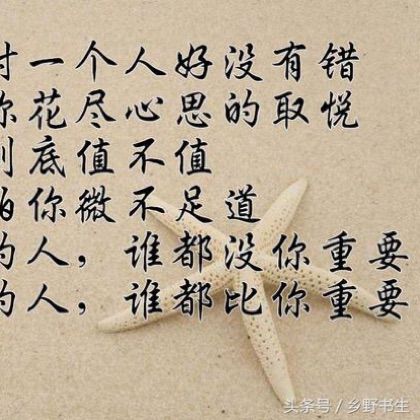 对一个人好没有错
你花尽心思的取悦
到底值不值
怕你微不足道
的人，谁都没你重要
的人，谁都比你重要
头条号／乡野书生